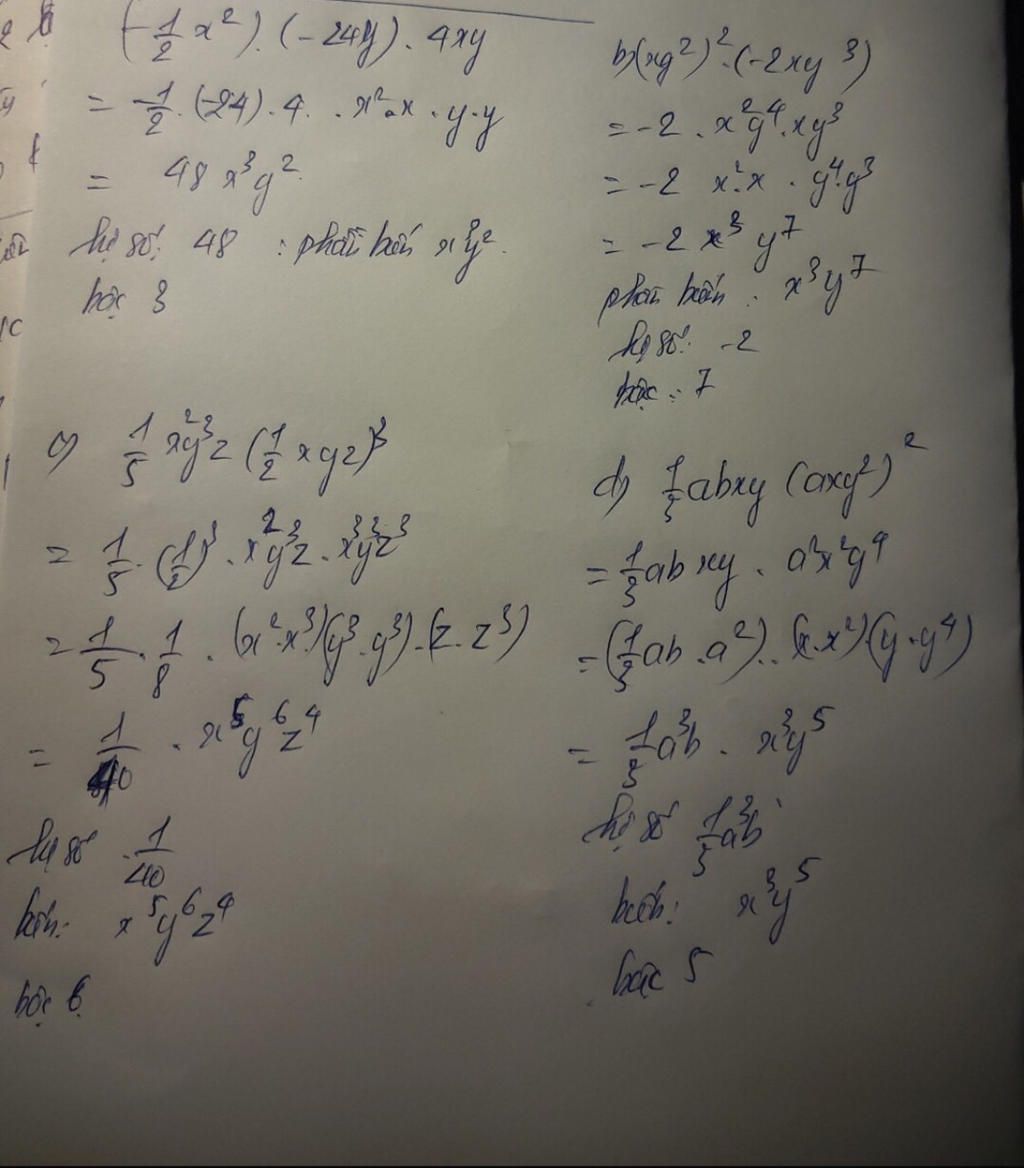 (-1/2 x²).(-24y).4xy
= -1/2.(-24).4. x².x.y.y
= 48 x³y²
hệ số: 48 : phần biến x³y².
bậc 3
b) (xy²)².(-2xy³)
= -2 . x²y⁴.xy³
= -2 x².x . y⁴.y³
= -2 x³ y⁷
phần biến : x³y⁷
hệ số: -2
bậc : 7
c) 1/5 x²y³z (1/2 xyz)³
= 1/5.(1/2)³ . x²y³z . x³y³z³
= 1/5 . 1/8 . (x².x³)(y³.y³).(z.z³)
= 1/40 . x⁵y⁶z⁴
hệ số 1/40
biến: x⁵y⁶z⁴
bậc 6
d) 1/3 abxy (axy²)²
= 1/3 abxy . a²x²y⁴
= (1/3 ab.a²)..(x.x²)(y.y⁴)
= 1/3 a³b . x³y⁵
hệ số 1/3 a³b
biến: x³y⁵
bậc 5